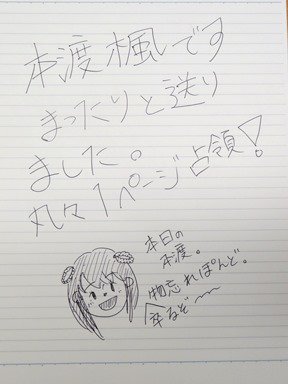 本渡楓です
まったりと送り
ました。
丸々1ページ占領!
本日の
本渡。
物忘れぽんど。
傘など〜